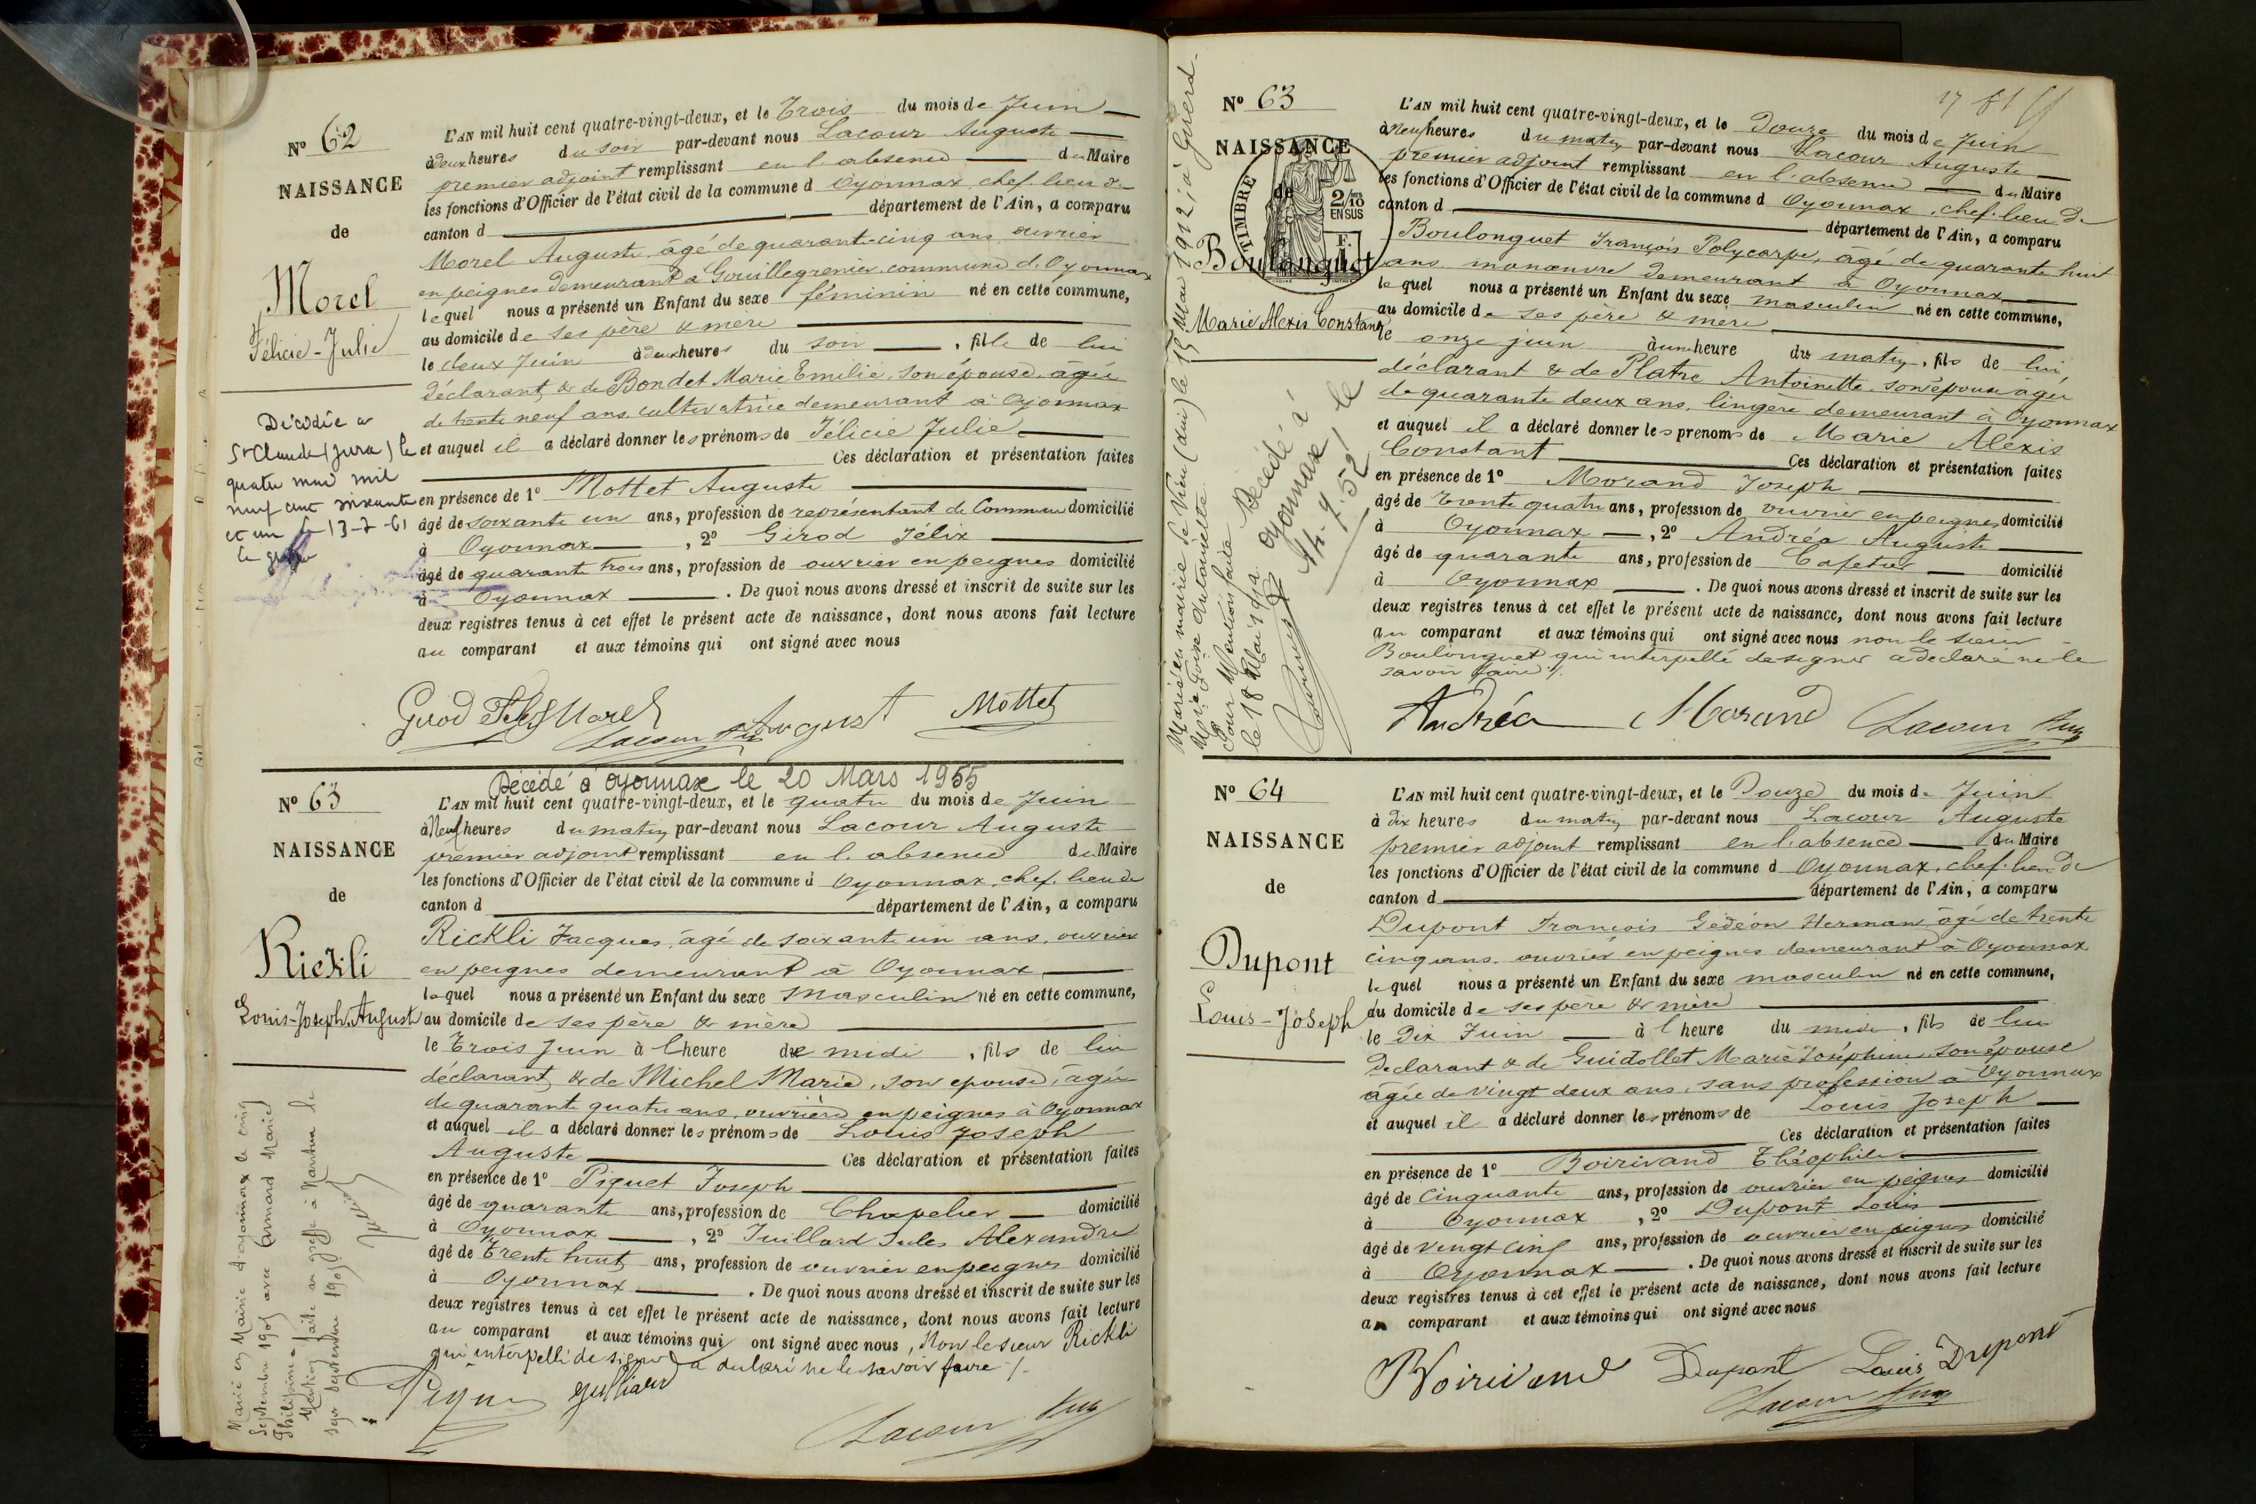 N° 62
NAISSANCE
de
Morel
Félicie-Julie
Décédée à
St Claude (Jura) le
quatre mai mil
neuf cent soixante
et un le 13-7-61
L'AN mil huit cent quatre-vingt-deux, et le Trois du mois de Juin
à deux heures du soir par-devant nous Lacour Auguste
premier adjoint remplissant en l'absence du Maire
les fonctions d'Officier de l'état civil de la commune d Oyonnax, chef-lieu de
canton d département de l'Ain, a comparu
Morel Auguste, âgé de quarante-cinq ans, ouvrier
en peignes demeurant à Gouillegrenier commune d'Oyonnax
lequel nous a présenté un Enfant du sexe féminin né en cette commune,
au domicile de ses père & mère
le deux Juin à deux heures du soir, fille de lui
déclarant & de Bondet Marie Emilie, son épouse, âgée
de trente neuf ans, cultivatrice demeurant à Oyonnax
et auquel il a déclaré donner les prénoms de Félicie Julie
Ces déclaration et présentation faites
en présence de 1° Mottet Auguste
âgé de soixante un ans, profession de représentant de Commerce domicilié
à Oyonnax, 2° Girod Félix
âgé de quarante trois ans, profession de ouvrier en peignes domicilié
à Oyonnax. De quoi nous avons dressé et inscrit de suite sur les
deux registres tenus à cet effet le présent acte de naissance, dont nous avons fait lecture
au comparant et aux témoins qui ont signé avec nous
Girod Félix Morel August Mottet
Lacour Aug
Décédé à Oyonnax le 20 Mars 1955
N° 63
NAISSANCE
de
Rickli
Louis-Joseph-August
Marié en Mairie d'Oyonnax le cinq
Septembre 1905 avec Carmard Marie
Philippine
Mention faite au greffe à Nantua le
sept septembre 1905
L'AN mil huit cent quatre-vingt-deux, et le quatre du mois de Juin
à Neuf heures du matin par-devant nous Lacour Auguste
premier adjoint remplissant en l'absence du Maire
les fonctions d'Officier de l'état civil de la commune d Oyonnax, chef-lieu de
canton d département de l'Ain, a comparu
Rickli Jacques, âgé de soixante un ans, ouvrier
en peignes demeurant à Oyonnax
lequel nous a présenté un Enfant du sexe Masculin né en cette commune,
au domicile de ses père & mère
le Trois Juin à l heure de midi, fils de lui
déclarant & de Michel Marie, son épouse, âgée
de quarante quatre ans, ouvrière en peignes à Oyonnax
et auquel il a déclaré donner les prénoms de Louis Joseph
Auguste Ces déclaration et présentation faites
en présence de 1° Piquet Joseph
âgé de quarante ans, profession de Chapelier domicilié
à Oyonnax, 2° Juillard Jules Alexandre
âgé de Trente huit ans, profession de ouvrier en peignes domicilié
à Oyonnax. De quoi nous avons dressé et inscrit de suite sur les
deux registres tenus à cet effet le présent acte de naissance, dont nous avons fait lecture
au comparant et aux témoins qui ont signé avec nous, Non le sieur Rickli
qui interpellé de signer a déclaré ne le savoir faire /.
Juilliard
Lacour Aug
17 81
N° 63
NAISSANCE
de
TIMBRE
2/10
EN SUS
F.
Boulonguet
Marie Alexis Constant
Marié en mairie le Vieu (Ain) le 15 Mai 1912, à Girerd
Marie Louise Antoinette
Pour Mention faite
le 18 Mai 1912
Décédé à
Oyonnax le
14.7.52
L'AN mil huit cent quatre-vingt-deux, et le Douze du mois de Juin
à Neuf heures du matin par-devant nous Lacour Auguste
premier adjoint remplissant en l'absence du Maire
les fonctions d'Officier de l'état civil de la commune d Oyonnax, chef-lieu de
canton d département de l'Ain, a comparu
Boulonguet François Polycarpe, âgé de quarante huit
ans manœuvre demeurant à Oyonnax
lequel nous a présenté un Enfant du sexe masculin né en cette commune,
au domicile de ses père & mère
le onze juin à une heure du matin, fils de lui
déclarant & de Platre Antoinette son épouse âgée
de quarante deux ans, lingère demeurant à Oyonnax
et auquel il a déclaré donner les prénoms de Marie Alexis
Constant Ces déclaration et présentation faites
en présence de 1° Morand Joseph
âgé de Trente quatre ans, profession de ouvrier en peignes domicilié
à Oyonnax, 2° Andréa Auguste
âgé de quarante ans, profession de Cafetier domicilié
à Oyonnax. De quoi nous avons dressé et inscrit de suite sur les
deux registres tenus à cet effet le présent acte de naissance, dont nous avons fait lecture
au comparant et aux témoins qui ont signé avec nous non le sieur
Boulonguet qui interpellé de signer a déclaré ne le
savoir faire /.
Andréa Morand Lacour Aug
N° 64
NAISSANCE
de
Dupont
Louis-Joseph
L'AN mil huit cent quatre-vingt-deux, et le Douze du mois de Juin
à dix heures du matin par-devant nous Lacour Auguste
premier adjoint remplissant en l'absence du Maire
les fonctions d'Officier de l'état civil de la commune d Oyonnax, chef-lieu de
canton d département de l'Ain, a comparu
Dupont François Gédéon Herman âgé de trente
cinq ans, ouvrier en peignes demeurant à Oyonnax
lequel nous a présenté un Enfant du sexe masculin né en cette commune,
au domicile de ses père & mère
le Dix Juin à l heure du midi, fils de lui
Déclarant & de Guidollet Marie Joséphine, son épouse
âgée de vingt deux ans, sans profession à Oyonnax
et auquel il a déclaré donner les prénoms de Louis Joseph
Ces déclaration et présentation faites
en présence de 1° Boirivand Théophile
âgé de Cinquante ans, profession de ouvrier en peignes domicilié
à Oyonnax, 2° Dupont Louis
âgé de vingt cinq ans, profession de ouvrier en peignes domicilié
à Oyonnax. De quoi nous avons dressé et inscrit de suite sur les
deux registres tenus à cet effet le présent acte de naissance, dont nous avons fait lecture
au comparant et aux témoins qui ont signé avec nous
Boirivand Dupont Louis Dupont
Lacour Aug